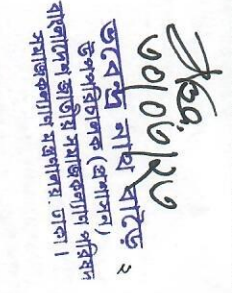 ৩০/০৩/২৩
শুবেন্দু নাথ বাড়ৈ
উপপরিচালক (প্রশাসন)
বাংলাদেশ জাতীয় সমাজকল্যাণ পরিষদ
সমাজকল্যাণ মন্ত্রণালয়. ঢাকা।